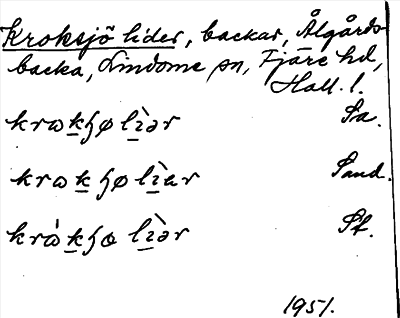 Kroksjö lider, backar, Ålgårds-
backa, Lindome sn, Fjäre hd,
Hall. l.
krɷkɧø lìər Sa.
krɷkɧø lìar Sand.
krɷ́kɧɷ lìər Sf.
1951.